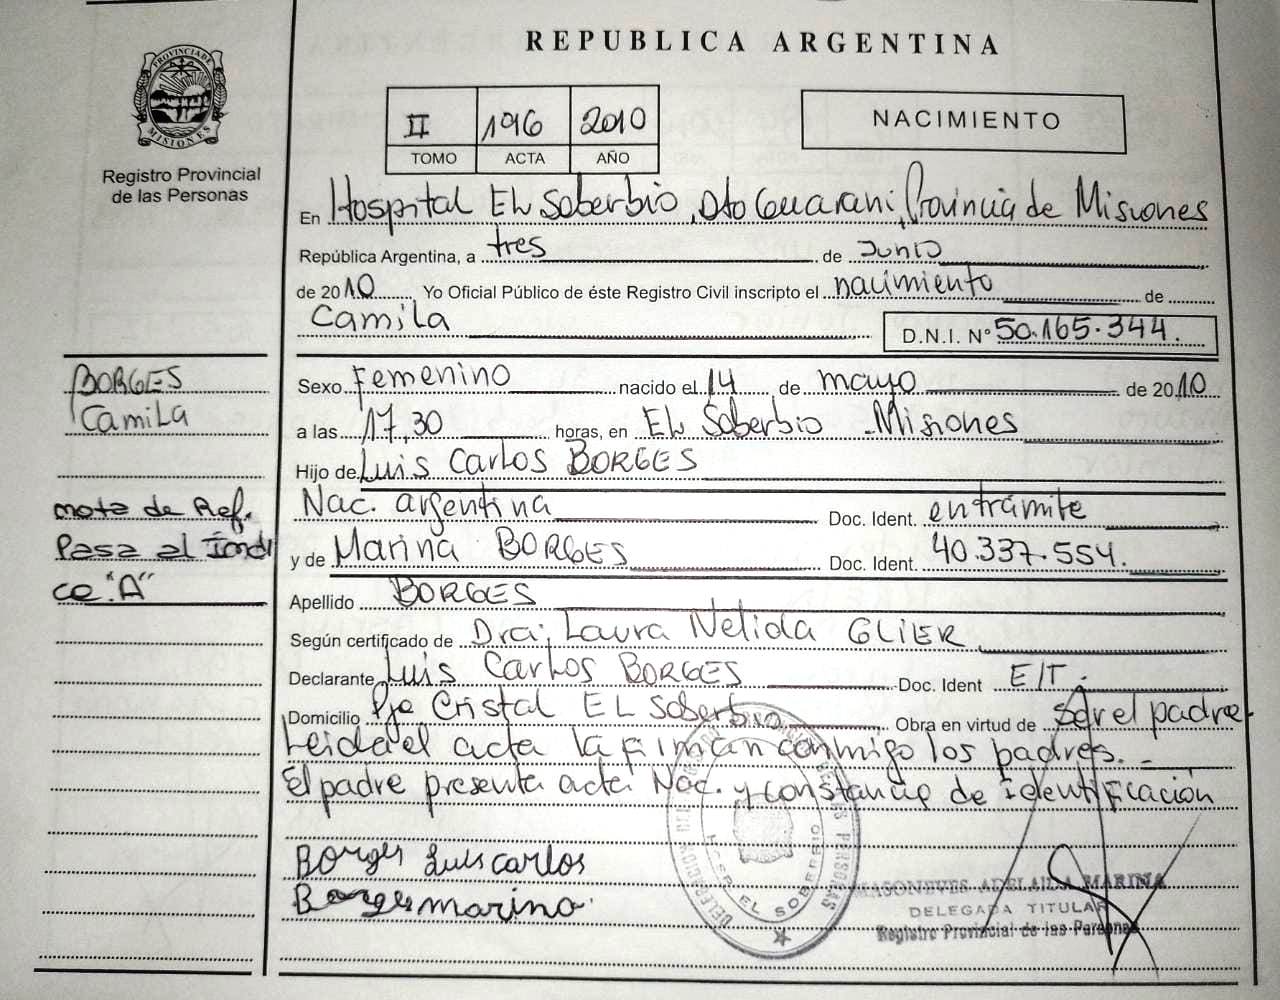 REPUBLICA ARGENTINA
PROVINCIA DE MISIONES
Registro Provincial
de las Personas
II 196 2010
TOMO ACTA AÑO
NACIMIENTO
En Hospital EL Soberbio, Dto Guarani, Provincia de Misiones
República Argentina, a tres de Junio
de 2010 Yo Oficial Público de éste Registro Civil inscripto el nacimiento de
Camila D.N.I. Nº 50.165.344.
BORGES
Camila
Sexo Femenino nacido el 14 de mayo de 2010
a las 17,30 horas, en EL Soberbio Misiones
Hijo de Luis Carlos BORGES
Nac. argentina Doc. Ident. entrámite
y de Marina BORGES Doc. Ident. 40.337.554.
nota de Ref.
Pasa al Indi
ce "A"
Apellido BORGES
Según certificado de Dra; Laura Nelida GLIER
Declarante Luis Carlos BORGES Doc. Ident E/T.
Domicilio Pje Cristal EL Soberbio Obra en virtud de Ser el padre
Leida el acta la firman conmigo los padres.
El padre presenta acta Nac. y constancia de identificación
Borges Luis carlos
Borges marina
DELEGACION DEL REGISTRO PROVINCIAL DE LAS PERSONAS
HOSP. EL SOBERBIO
MASONEVES ADELAIDA MARINA
DELEGADA TITULAR
Registro Provincial de las Personas